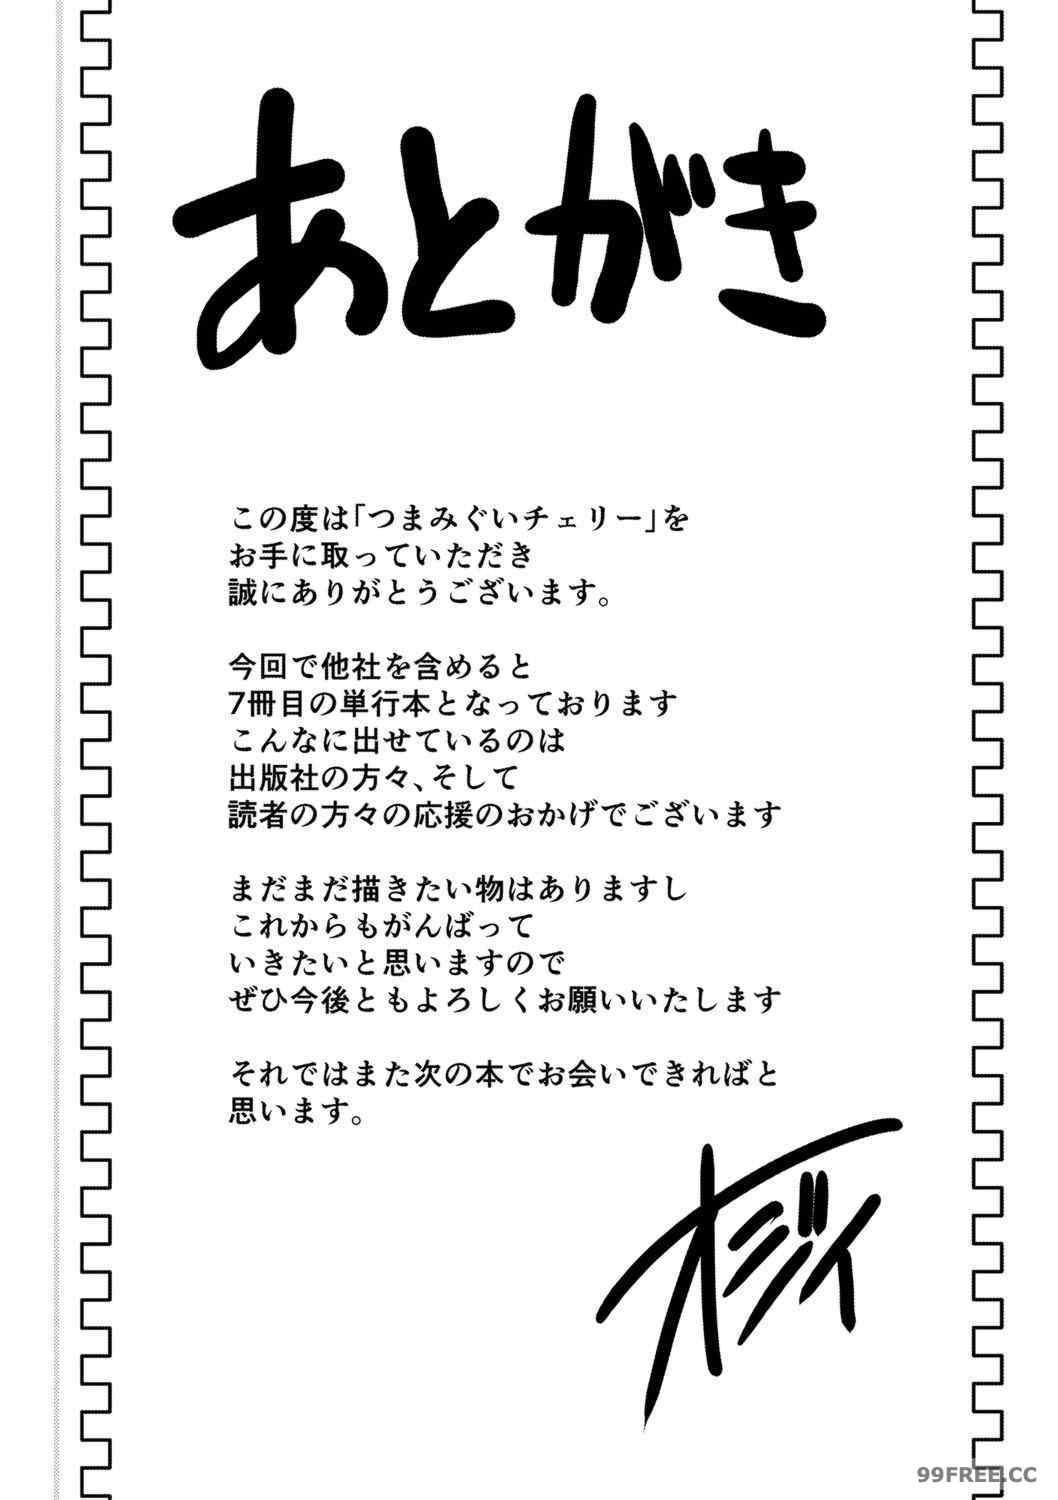 あとがき
この度は「つまみぐいチェリー」を
お手に取っていただき
誠にありがとうございます。
今回で他社を含めると
7冊目の単行本となっております
こんなに出せているのは
出版社の方々、そして
読者の方々の応援のおかげでございます
まだまだ描きたい物はありますし
これからもがんばって
いきたいと思いますので
ぜひ今後ともよろしくお願いいたします
それではまた次の本でお会いできればと
思います。
オジイ
99FREE.CC